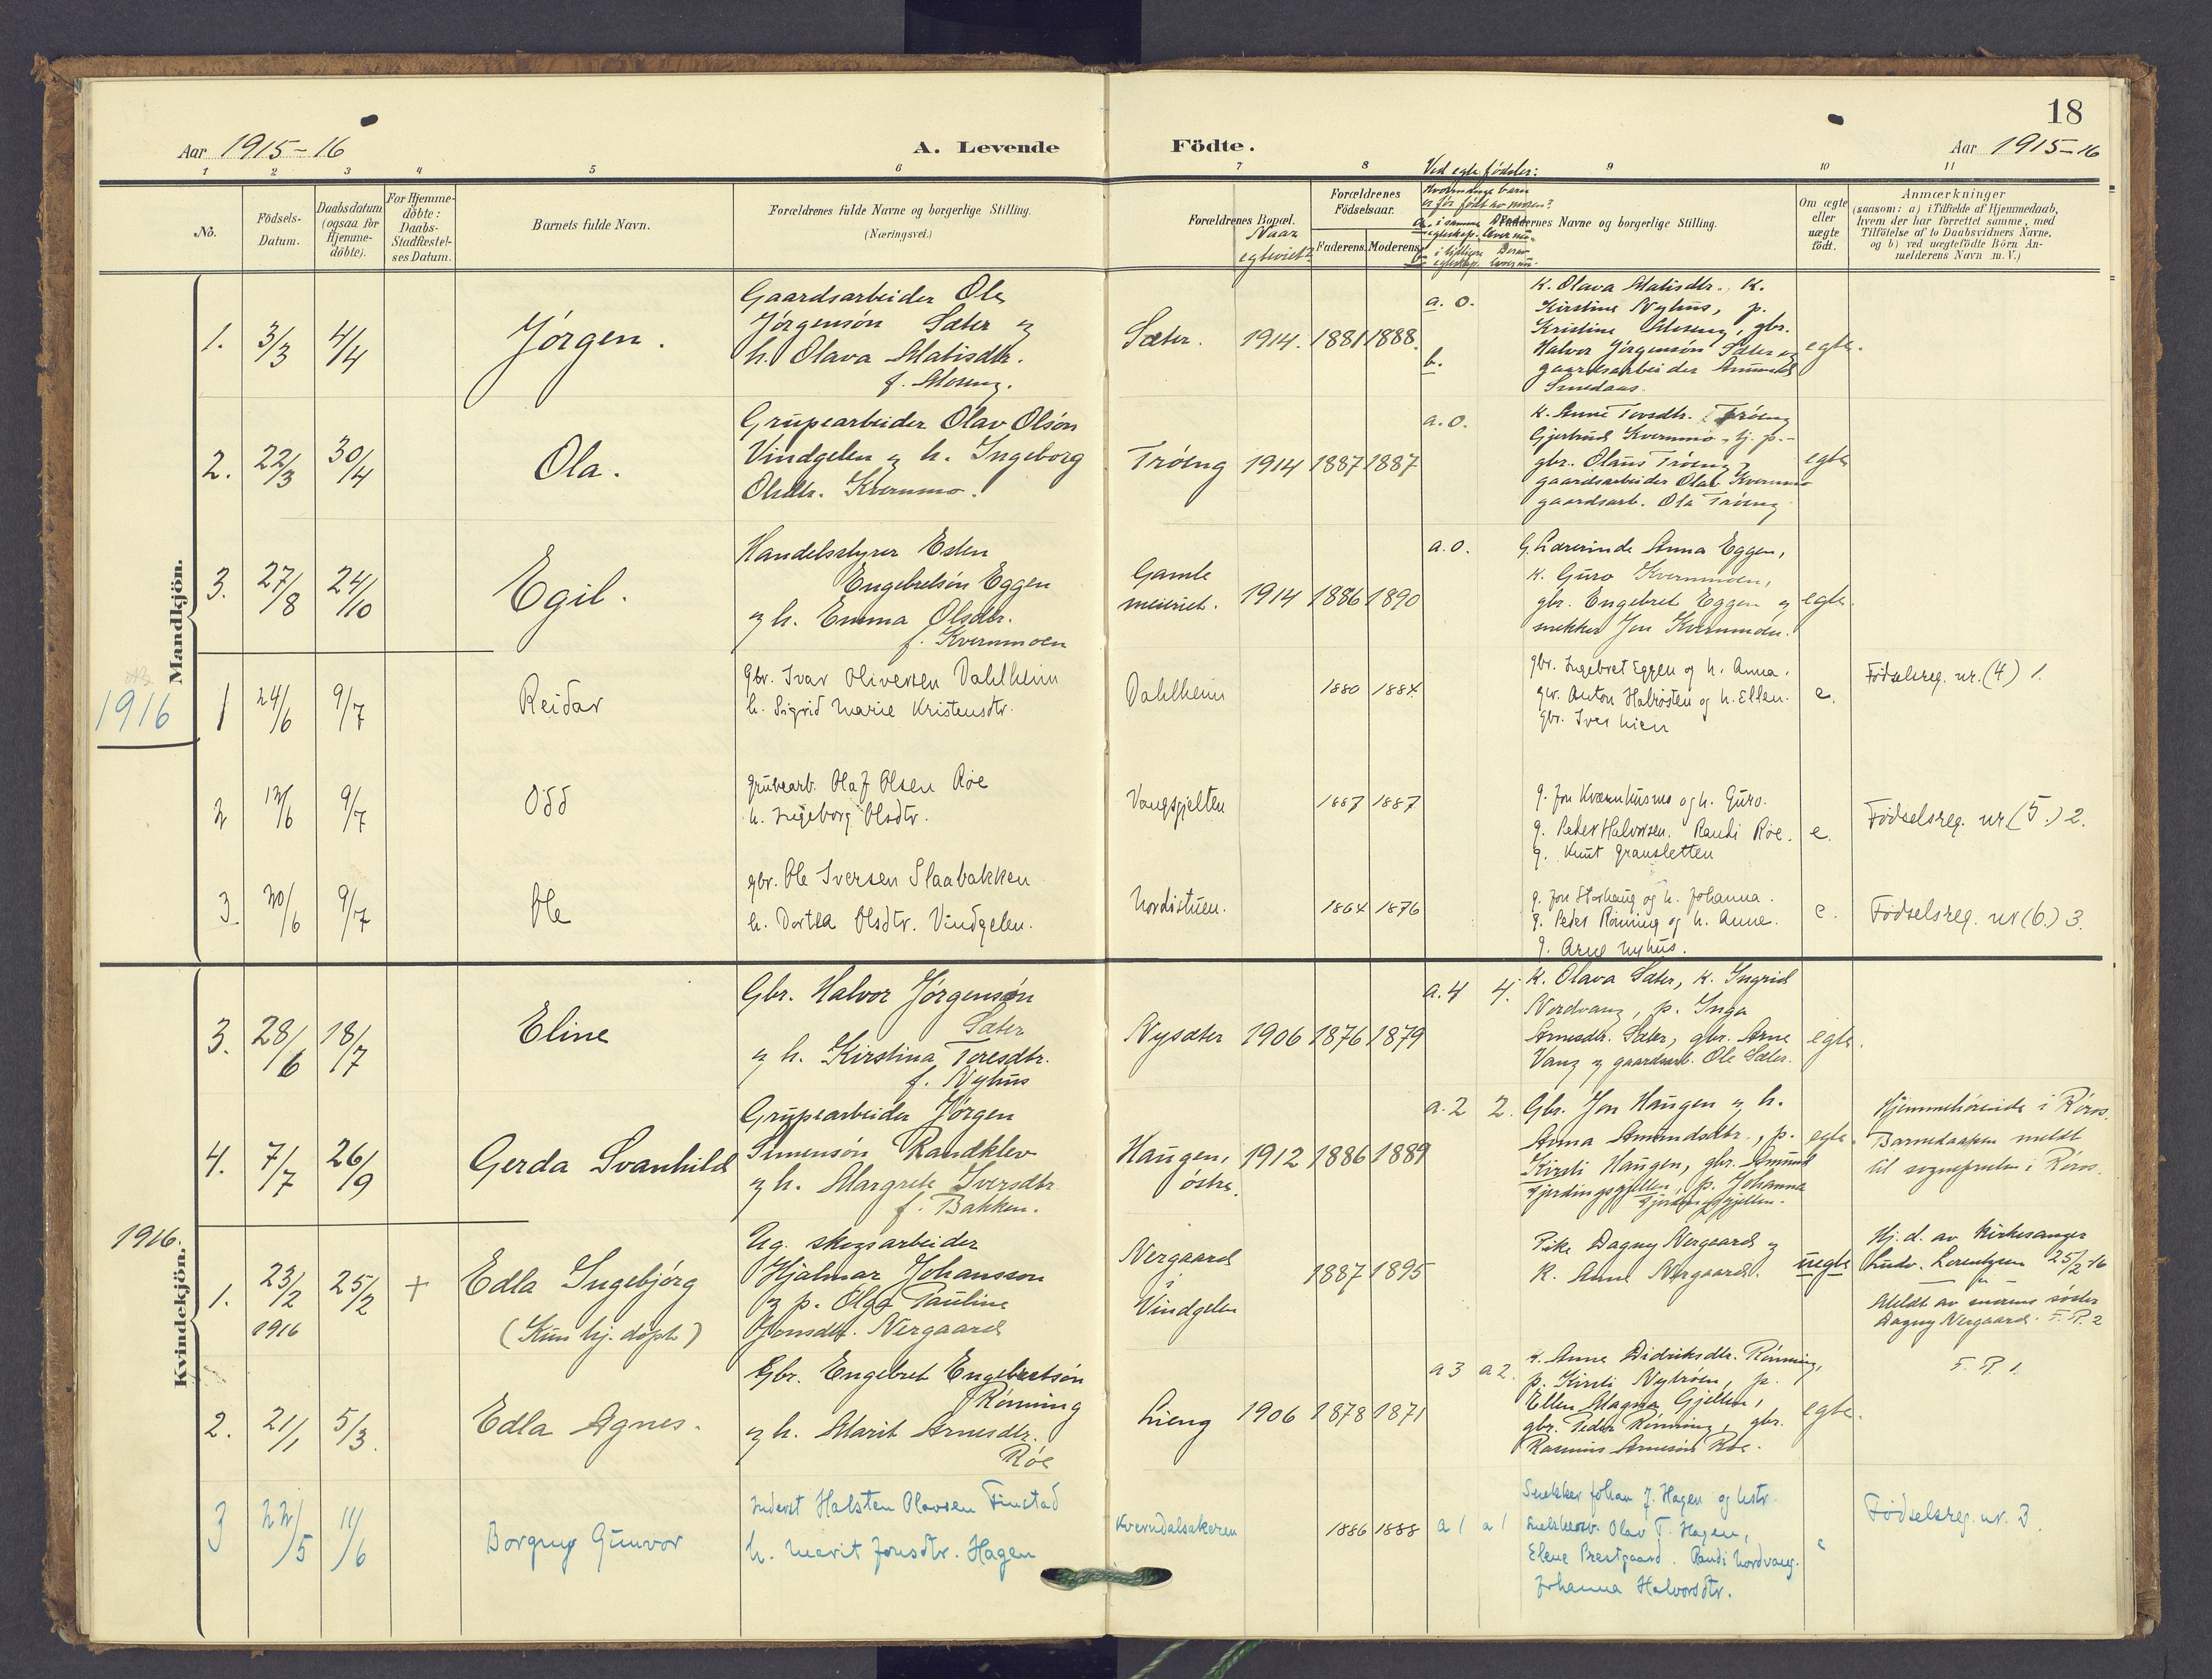 18
Aar 1915-16
A. Levende
Födte.
Aar 1915-16
1 2 3 4 5 6 7 8 9 10 11
Ved egte fødsler:
No.
Födsels-
Datum.
Daabsdatum
(ogsaa for
Hjemme-
döbte).
For Hjemme-
döbte:
Daabs-
Stadfæstel-
ses Datum.
Barnets fulde Navn.
Forældrenes fulde Navne og borgerlige Stilling.
(Næringsvei.)
Forældrenes Bopæl.
Naar
egteviet?
Forældrenes
Födselsaar.
Faderens.
Moderens.
Hvormange barn
er før født av moren?
a. i samme
egteskap.
b. i tidligere
egteskap.
Faddernes Navne og borgerlige Stilling.
Om ægte
eller
uægte
födt.
Anmærkninger
(saasom: a) i Tilfælde af Hjemmedaab,
hvem der har forrettet samme, med
Tilföielse af to Daabsvidners Navne,
og b) ved uægtefödte Börn An-
melderens Navn m. V.)
Mandkjön.
1. 3/3 4/4
Jörgen.
Gaardsarbeider Ole
Jörgensön Sæter og
h. Olava Matisdtr.
f. Moseng.
Sæter. 1914. 1881 1888.
a. 0.
b.
K. Olava Matisdtr., K.
Kirstine Nyhus, p.
Kristine Moseng, gbr.
Halvor Jörgensön Sæter og
gaardsarbeider Amund
Smedaas.
egte.
2. 22/3 30/4
Ola.
Grupearbeider Olav Olsön
Vindgelen og h. Ingeborg
Olsdtr. Kvernmo.
Tröeng 1914 1887 1887
a. 0.
K. Anne Torsdtr. Tröeng
Gjertrud Kvernmo, tj. p. -
gbr. Olaus Tröeng,
gaardsarbeider Olav Kvernmo
gaardsarb. Ola Tröeng
egte
3. 27/8 24/10
Egil.
Handelsstyrer Esten
Engebretsön Eggen
og h. Emma Olsdtr.
f. Kvernmoen
Gamle
meieriet. 1914 1886 1890
a. 0.
G. Lærerinde Anna Eggen,
K. Guro Kvernmoen,
gbr. Engebret Eggen og
snekker Jon Kvernmoen.
egte.
1916
1 24/6 9/7
Reidar
gbr. Ivar Oliversen Dahlheim
h. Sigrid Marie Kristensdtr.
Dahlheim 1880 1884.
gbr. Ingebret Eggen og h. Anna.
gbr. Anton Halvosten og h. Ellen.
gbr. Iver Lien
e.
Födselsreg. nr. (4) 1.
2 12/6 9/7
Odd
grubearb. Olaf Olsen Röe
h. Ingeborg Olsdtr.
Vangsgjelten 1887 1887
g. Jon Kværnhusmo og h. Guro.
g. Peder Halvorsen. Randi Röe.
g. Knut Gransletten
e.
Födselsreg. nr (5.) 2.
3. 30/6 9/7
Ole
gbr. Ole Iversen Slaabakken
h. Dortea Olsdtr. Vindgelen.
Nordistuen. 1864 1876
g. Jon Storhaug og h. Johanna.
g. Peder Rönning og h. Anne.
g. Arne Nyhus.
e.
Födselsreg. nr (6.) 3.
3. 28/6 18/7
Eline
Gbr. Halvor Jörgensön
Sæter
og h. Kirstina Toresdtr.
f. Nyhus
Nysæter 1906 1876 1879
a. 4 4.
K. Olava Sæter, K. Ingrid
Nordvang, p. Inga
Arnesdtr. Sæter, gbr. Arne
Vang og gaardsarb. Ole Sæter.
egte.
4. 7/7 26/9
Gerda Svanhild
Grupearbeider Jörgen
Simensön Randklev
og h. Margrete Iversdtr
f. Bakken.
Haugen,
östre. 1912 1886 1889
a. 2 2.
Gbr. Jon Haugen og h.
Anna Amundsdtr., p.
Kirsti Haugen, gbr. Amund
Fjerdingsgjellen, p. Johanna
Fjerdingsgjellen.
egte.
Hjemmehörende i Röros.
Barnedaapen meldt
til sogneprosten i Röros.
1916.
Kvindekjön.
1. 23/2 25/2 +
1916
Edla Ingebjörg
(Kun hj. döpt)
Ug. skogsarbeider
Hjalmar Johansson
og p. Olga Pauline
Jonsdtr. Nergaard
Nergaard
i
Vindgelen
1887 1895
Pike Dagny Nergaard og
K. Anne Nergaard.
uegte
Hj. d. av kirkesanger
Ludv. Lorentzen 25/2-16
Meldt av morens söster
Dagny Nergaard. F. R. 2
2. 21/1 5/3.
Edla Agnes.
Gbr. Engebret Engebretsön
Rönning
og h. Marit Arnesdtr.
Röe
Lieng 1906 1878 1871
a 3 a 2.
K. Anne Didriksdtr. Rönning,
p. Kirsti Nyröen, p.
Ellen Magna Gjelten,
gbr. Peder Rönning, gbr.
Rasmus Arnesön Röe.
egte.
F. R. 1.
3 22/5 11/6
Borgny Gunvor
Inderst Halsten Olavsen Finstad
h. Marit Jonsdtr. Hagen
Kverndalsakeren 1886 1888 a 1 a 1
Snekker Johan J. Hagen og hstr.
Snekkersv. Olav T. Hagen,
Elene Prestgaard. Randi Nordvang.
Johanna Halvorsdtr.
e
Födselsreg. nr. 3.